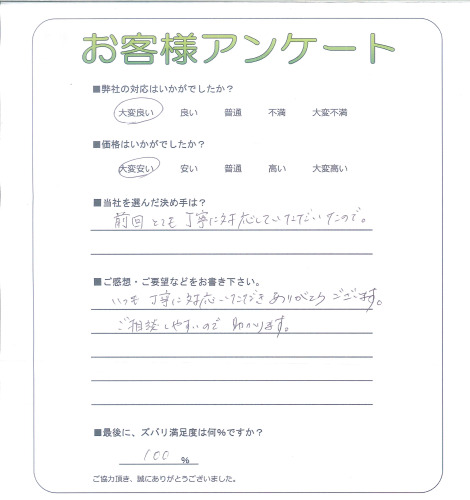 お客様アンケート
■弊社の対応はいかがでしたか?
大変良い 良い 普通 不満 大変不満
■価格はいかがでしたか?
大変安い 安い 普通 高い 大変高い
■当社を選んだ決め手は?
前回とても丁寧に対応していただいたので。
■ご感想・ご要望などをお書き下さい。
いつも丁寧に対応いただきありがとうございます。
ご相談しやすいので助かります。
■最後に、ズバリ満足度は何%ですか?
100 %
ご協力頂き、誠にありがとうございました。